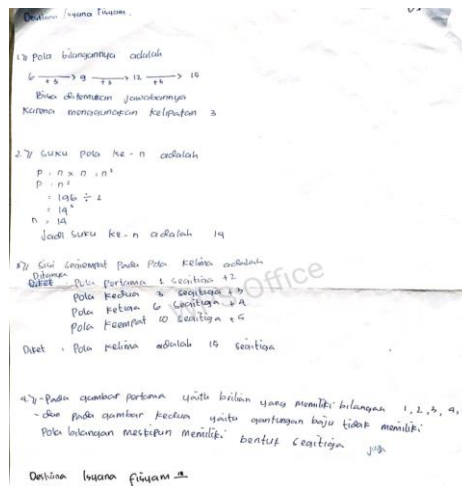 Desliana Isyana Fisyam.
1.) Pola bilangannya adalah
6 → 9 → 12 → 15
+3 +3 +3
Bisa ditemukan jawabannya
Karena menggunakan kelipatan 3
2.) Suku pola ke-n adalah
P = n x n = n²
P = n²
= 196 ÷ 2
= 14²
n = 14
Jadi suku ke-n adalah 14
3.) Sisi segiempat pada pola kelima adalah
Ditanya
Diket Pola pertama 1 segitiga +2
Pola kedua 3 segitiga +3
Pola ketiga 6 segitiga +4
Pola keempat 10 segitiga +5
Diket . Pola kelima adalah 15 segitiga
4.) - Pada gambar pertama yaitu yang memiliki bilangan 1, 2, 3, 4,
- dan pada gambar kedua yaitu gantungan baju tidak memiliki
Pola bilangan meskipun memiliki bentuk segitiga juga
Isyana Fisyam
WPS Office